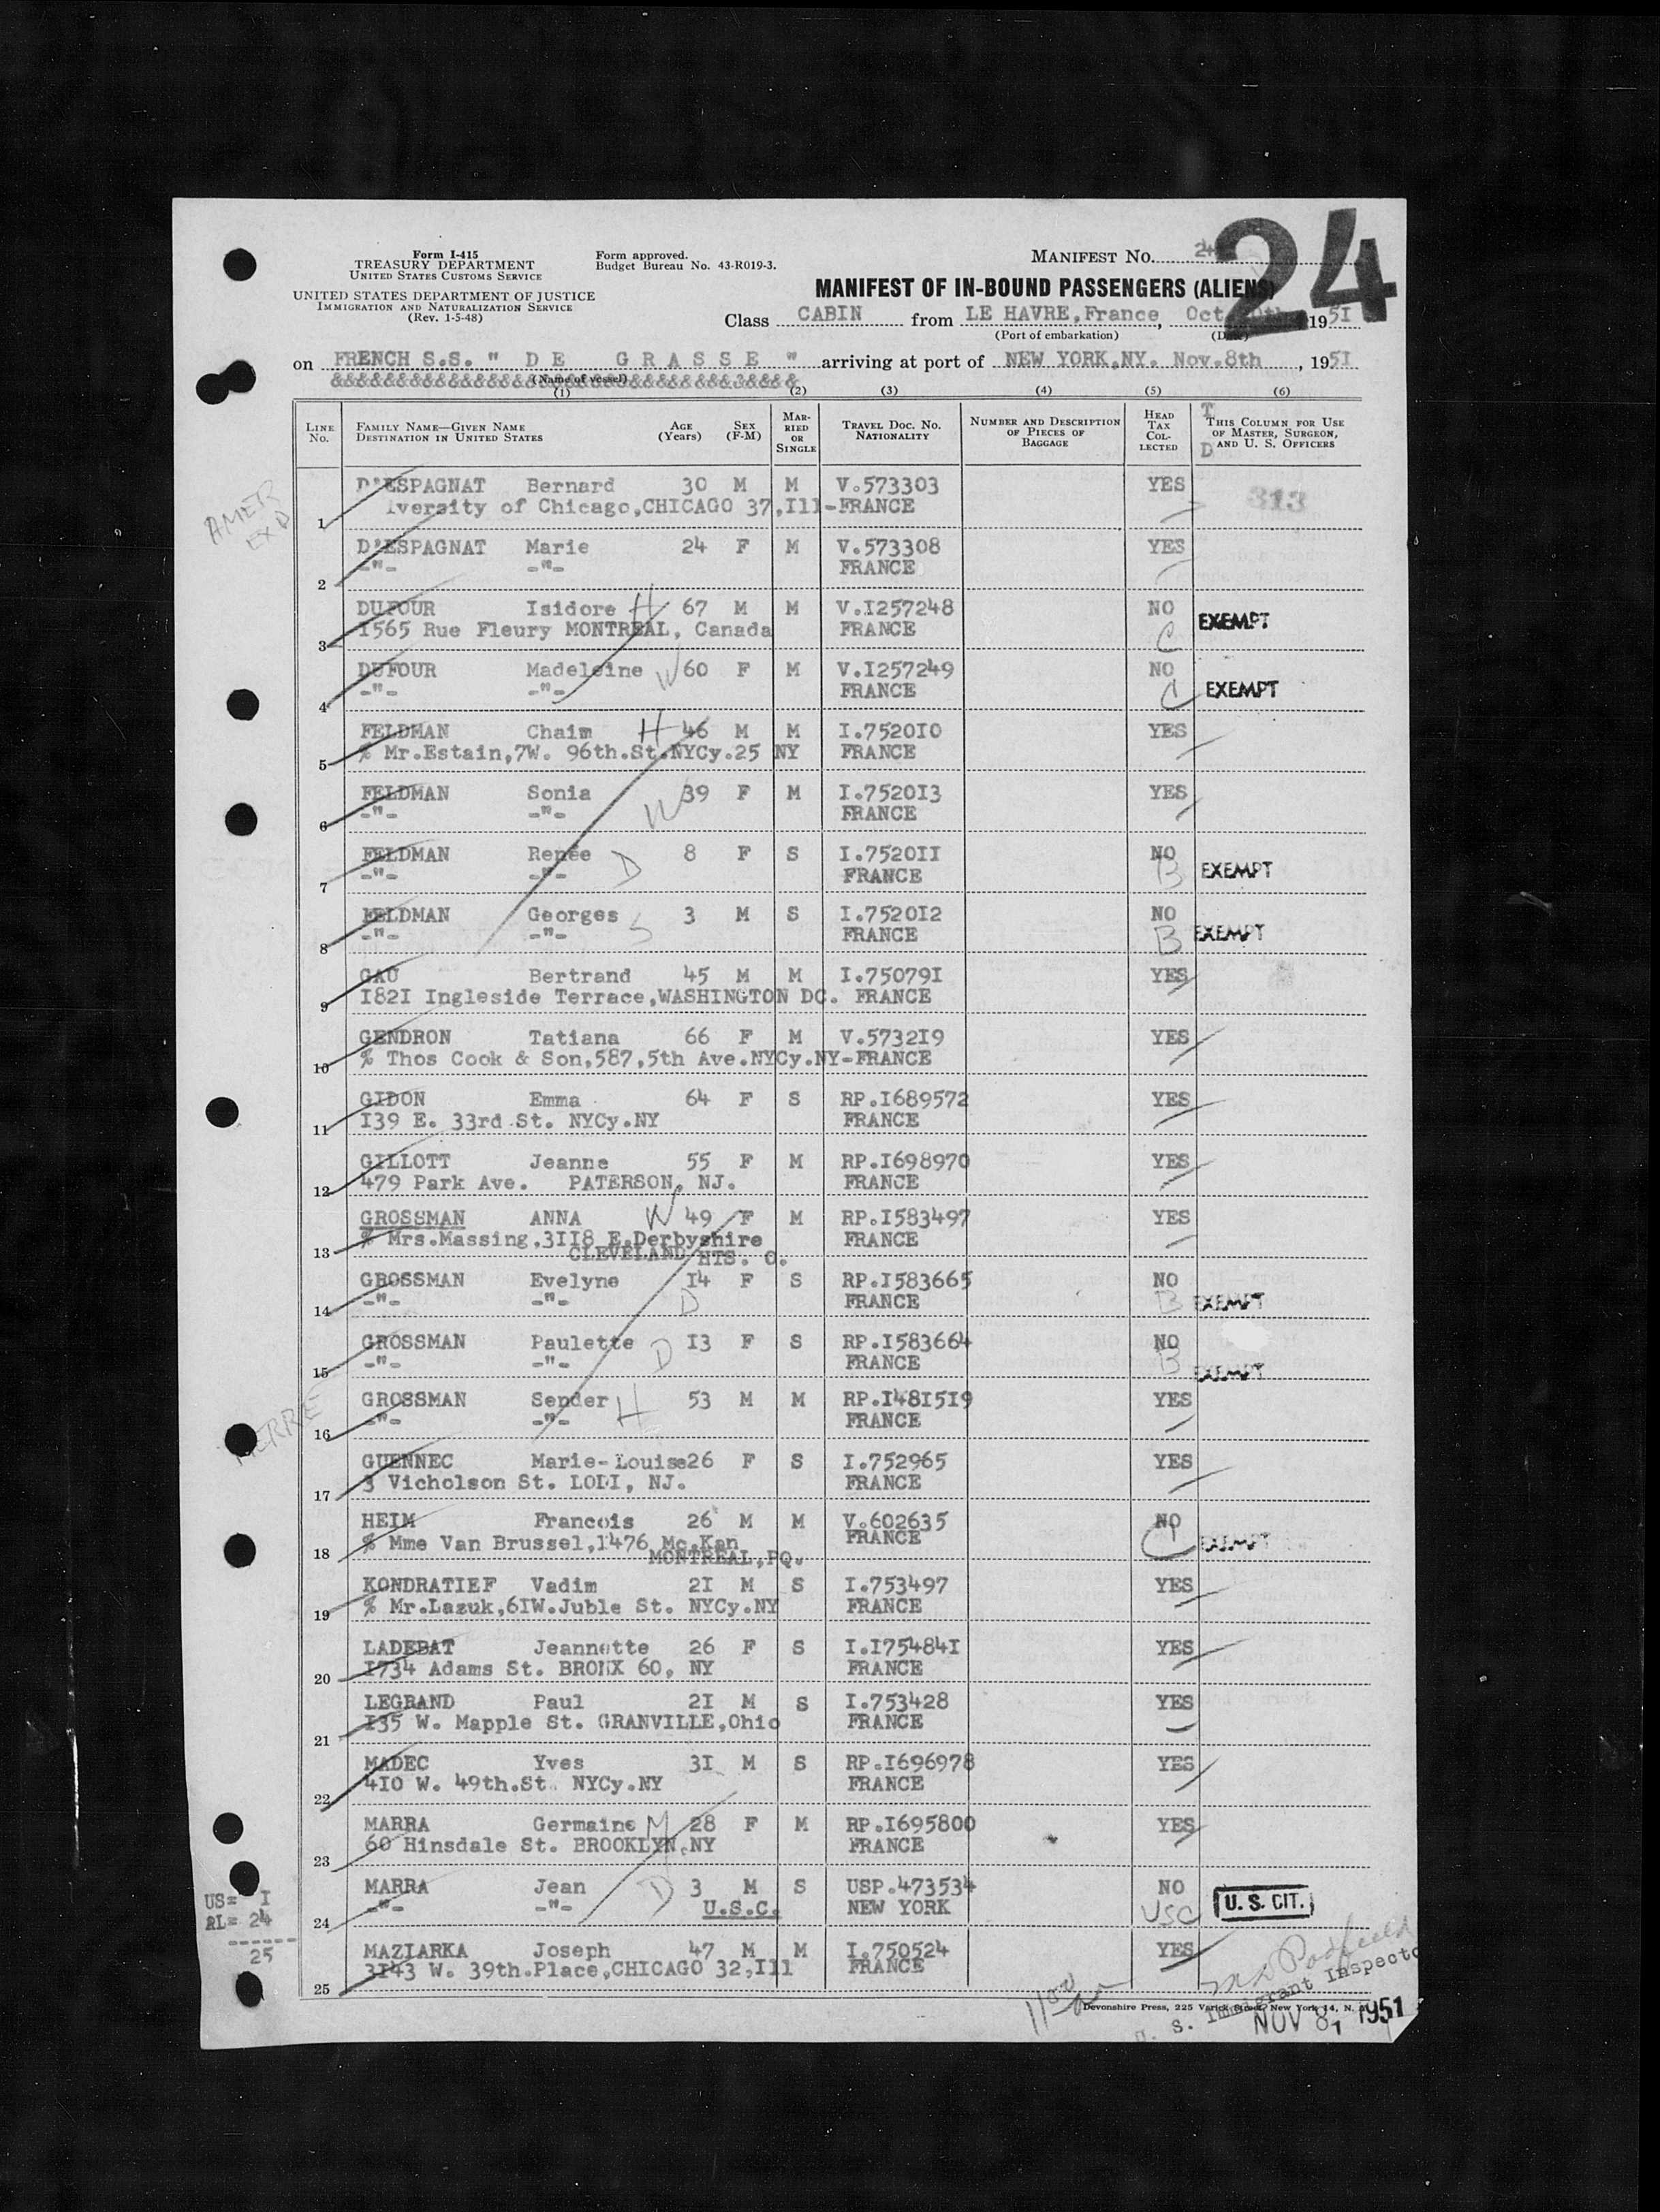 24
Form I-415
TREASURY DEPARTMENT
UNITED STATES CUSTOMS SERVICE
UNITED STATES DEPARTMENT OF JUSTICE
IMMIGRATION AND NATURALIZATION SERVICE
(Rev. 1-5-48)
Form approved.
Budget Bureau No. 43-R019-3.
MANIFEST NO. 24
MANIFEST OF IN-BOUND PASSENGERS (ALIENS)
Class CABIN from LE HAVRE,France, Oct. 1951
(Port of embarkation) (Date)
on FRENCH S.S. " D E G R A S S E " arriving at port of NEW YORK.NY. Nov.8th , 1951
(Name of vessel)
(1) (2) (3) (4) (5) (6)
LINE No. FAMILY NAME—GIVEN NAME DESTINATION IN UNITED STATES AGE (Years) SEX (F-M) MARRIED OR SINGLE TRAVEL DOC. NO. NATIONALITY NUMBER AND DESCRIPTION OF PIECES OF BAGGAGE HEAD TAX COLLECTED THIS COLUMN FOR USE OF MASTER, SURGEON, AND U. S. OFFICERS
T
D
AMER
EX D
D'ESPAGNAT Bernard 30 M M V.573303 YES 313
1 iversity of Chicago,CHICAGO 37,Ill-FRANCE
D'ESPAGNAT Marie 24 F M V.573308 YES
2 -"- -"- FRANCE
DUFOUR Isidore H 67 M M V.I257248 NO EXEMPT
3 I565 Rue Fleury MONTREAL, Canada FRANCE C
DUFOUR Madeleine W 60 F M V.I257249 NO EXEMPT
4 -"- -"- FRANCE C
FELDMAN Chaim H 46 M M I.7520I0 YES
5 % Mr.Estain,7W. 96th.St.NYCy.25 NY FRANCE
FELDMAN Sonia W 39 F M I.7520I3 YES
6 -"- -"- FRANCE
FELDMAN Renée D 8 F S I.7520II NO B EXEMPT
7 -"- -"- FRANCE
FELDMAN Georges S 3 M S I.7520I2 NO B EXEMPT
8 -"- -"- FRANCE
GAU Bertrand 45 M M I.75079I YES
9 I82I Ingleside Terrace,WASHINGTON DC. FRANCE
GENDRON Tatiana 66 F M V.5732I9 YES
10 % Thos Cook & Son,587,5th Ave.NYCy.NY-FRANCE
GIDON Emma 64 F S RP.I689572 YES
11 I39 E. 33rd St. NYCy.NY FRANCE
GILLOTT Jeanne 55 F M RP.I698970 YES
12 479 Park Ave. PATERSON. NJ. FRANCE
GROSSMAN ANNA W 49 F M RP.I583497 YES
13 % Mrs.Massing,3II8 E.Derbyshire FRANCE
CLEVELAND HTS. O.
GROSSMAN Evelyne D I4 F S RP.I583665 NO B EXEMPT
14 -"- -"- FRANCE
GROSSMAN Paulette D I3 F S RP.I583664 NO B EXEMPT
15 -"- -"- FRANCE
GROSSMAN Sender H 53 M M RP.I48I5I9 YES
16 -"- -"- FRANCE
GUENNEC Marie-Louise26 F S I.752965 YES
17 3 Vicholson St. LODI, NJ. FRANCE
HEIM Francois 26 M M V.602635 NO C EXEMPT
18 % Mme Van Brussel,I476 Mc.Kan FRANCE
MONTREAL,PQ.
KONDRATIEF Vadim 2I M S I.753497 YES
19 % Mr.Lazuk,6IW.Juble St. NYCy.NY FRANCE
LADEBAT Jeannette 26 F S I.I75484I YES
20 I734 Adams St. BRONX 60, NY FRANCE
LEGRAND Paul 2I M S I.753428 YES
21 I35 W. Mapple St. GRANVILLE,Ohio FRANCE
MADEC Yves 3I M S RP.I696978 YES
22 4I0 W. 49th.St. NYCy.NY FRANCE
MARRA Germaine M 28 F M RP.I695800 YES
23 60 Hinsdale St. BROOKLYN.NY FRANCE
MARRA Jean D 3 M S USP.473534 NO U. S. CIT.
24 -"- -"- U.S.C. NEW YORK USC
MAZIARKA Joseph 47 M M I.750524 YES
25 3I43 W. 39th.Place,CHICAGO 32,Ill FRANCE
US= I
AL= 24
------
25
Devonshire Press, 225 Varick Street, New York 14, N. Y.
U. S. Immigrant Inspector
NOV 8, 1951